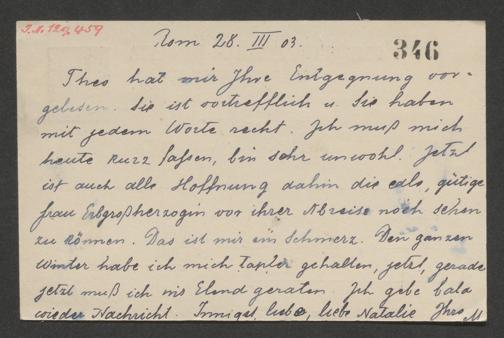 J.N. 129,459
Rom 28. III 03.
346
Theo hat mir Ihre Entgegnung vor-
gelesen. Sie ist vortrefflich u. Sie haben
mit jedem Worte recht. Ich muß mich
heute kurz fassen, bin sehr unwohl. Jetzt
ist auch alle Hoffnung dahin die edle, gütige
Frau Erbgroßherzogin vor ihrer Abreise noch sehen
zu können. Das ist mir ein Schmerz. Den ganzen
Winter habe ich mich tapfer gehalten, jetzt, gerade
jetzt muß ich ins Elend geraten. Ich gebe bald
wieder Nachricht. Innigst, liebe, liebe Natalie Ihre M